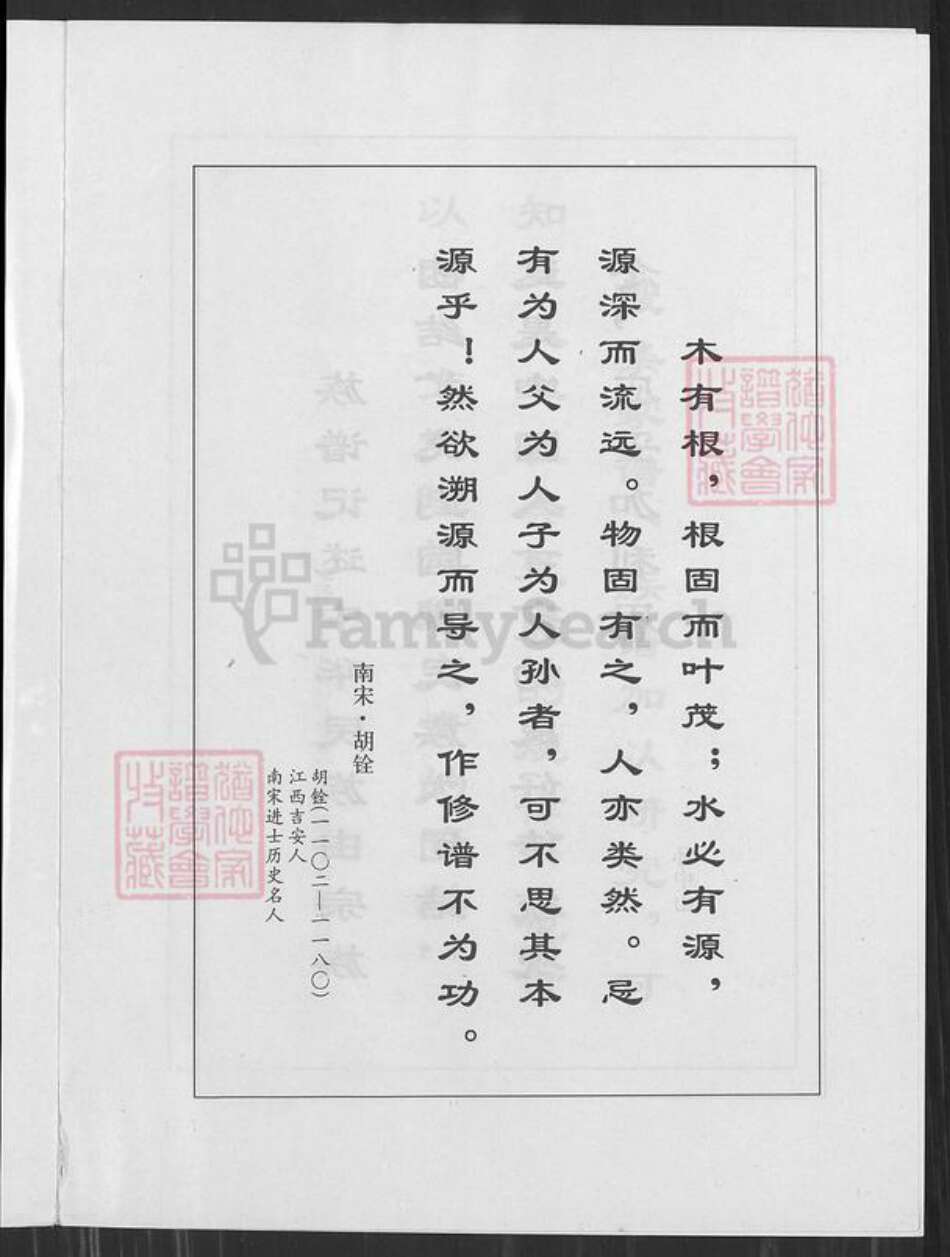 木有根，根固而叶茂；水必有源，
源深而流远。物固有之，人亦类然。忌
有为人父为人子为人孙者，可不思其本
源乎！然欲溯源而导之，作修谱不为功。
南宋·胡铨
胡铨(一一〇二—一一八〇)
江西吉安人
南宋进士历史名人
FamilySearch